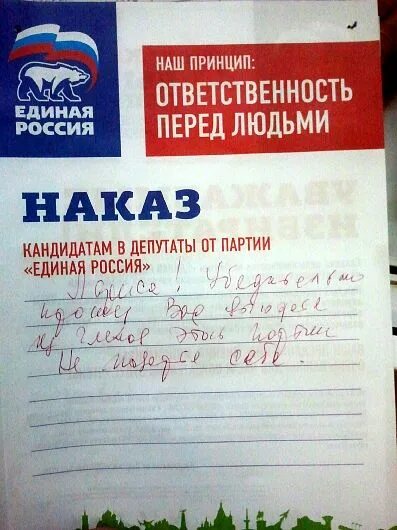 ЕДИНАЯ
РОССИЯ
НАШ ПРИНЦИП:
ОТВЕТСТВЕННОСТЬ
ПЕРЕД ЛЮДЬМИ
НАКАЗ
КАНДИДАТАМ В ДЕПУТАТЫ ОТ ПАРТИИ
«ЕДИНАЯ РОССИЯ»
Лариса! Убедительно
просим Вас выйдете
из членов этой партии
Не позорьте себя.